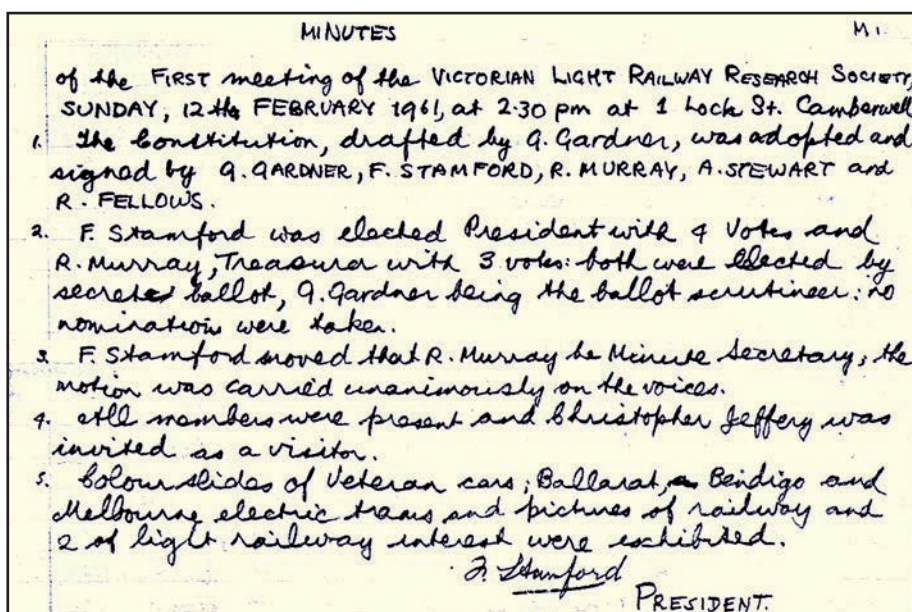 MINUTES M1.
of the FIRST meeting of the VICTORIAN LIGHT RAILWAY RESEARCH SOCIETY,
SUNDAY, 12th FEBRUARY 1961, at 2.30 pm at 1 Lock St. Camberwell
1. The Constitution, drafted by G. Gardner, was adopted and
signed by G. GARDNER, F. STAMFORD, R. MURRAY, A. STEWART and
R. FELLOWS.
2. F. Stamford was elected President with 4 Votes and
R. Murray, Treasurer with 3 votes: both were elected by
secret ballot, G. Gardner being the ballot scrutineer: no
nomination were taken.
3. F. Stamford moved that R. Murray be Minute Secretary; the
motion was carried unanimously on the voices.
4. All members were present and Christopher Jeffery was
invited as a visitor.
5. Colour slides of Veteran cars; Ballarat, Bendigo and
Melbourne electric trams and pictures of railway and
2 of light railway interest were exhibited.
F. Stamford
PRESIDENT.